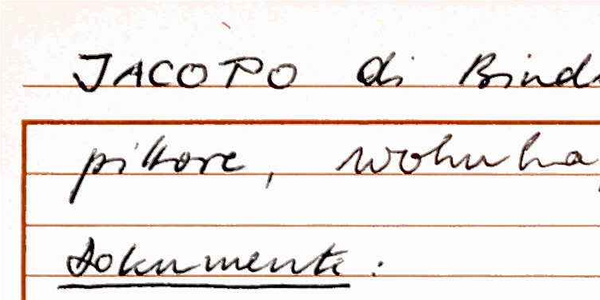 JACOPO di Bind
pittore, wohnha
Dokumente: